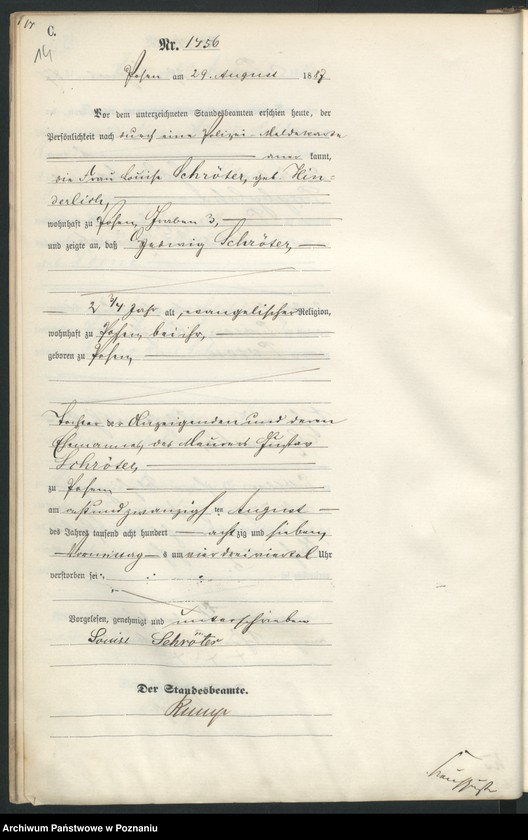 C.
14
Nr. 1756
Posen am 29. August 1887
Vor dem unterzeichneten Standesbeamten erschien heute, der
Persönlichkeit nach durch eine Polizei-Meldekarte
aner kannt,
die Frau Louise Schröter, geb. Hin-
derlich,
wohnhaft zu Posen, Graben 3,
und zeigte an, daß Hedwig Schröter,
2 3/4 Jahr alt, evangelischer Religion,
wohnhaft zu Posen bei ihr,
geboren zu Posen,
Tochter der Anzeigenden und deren
Ehemannes, des Maurers Gustav
Schröter,
zu Posen
am achtundzwanzigsten August
des Jahres tausend acht hundert achtzig und sieben,
Vormittag s um vier dreiviertel Uhr
verstorben sei.
Vorgelesen, genehmigt und unterschrieben
Louise Schröter
Der Standesbeamte.
Archiwum Państwowe w Poznaniu